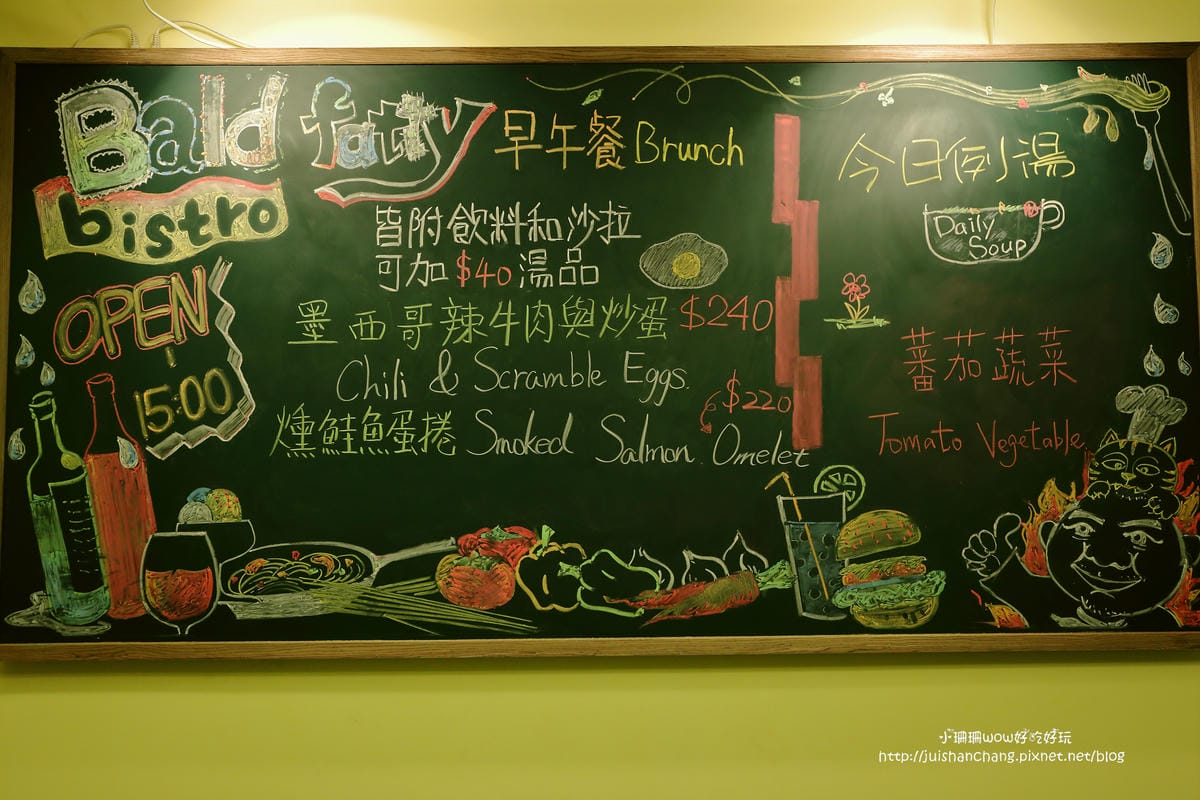 Bald fatty
bistro
早午餐 Brunch
皆附飲料和沙拉
可加 $40 湯品
墨西哥辣牛肉與炒蛋 $240
Chili & Scramble Eggs.
$220
燻鮭魚蛋捲 Smoked Salmon. Omelet
OPEN
15:00
今日例湯
Daily
Soup
蕃茄蔬菜
Tomato Vegetable
小珊珊wow好吃好玩
http://juishanchang.pixnet.net/blog